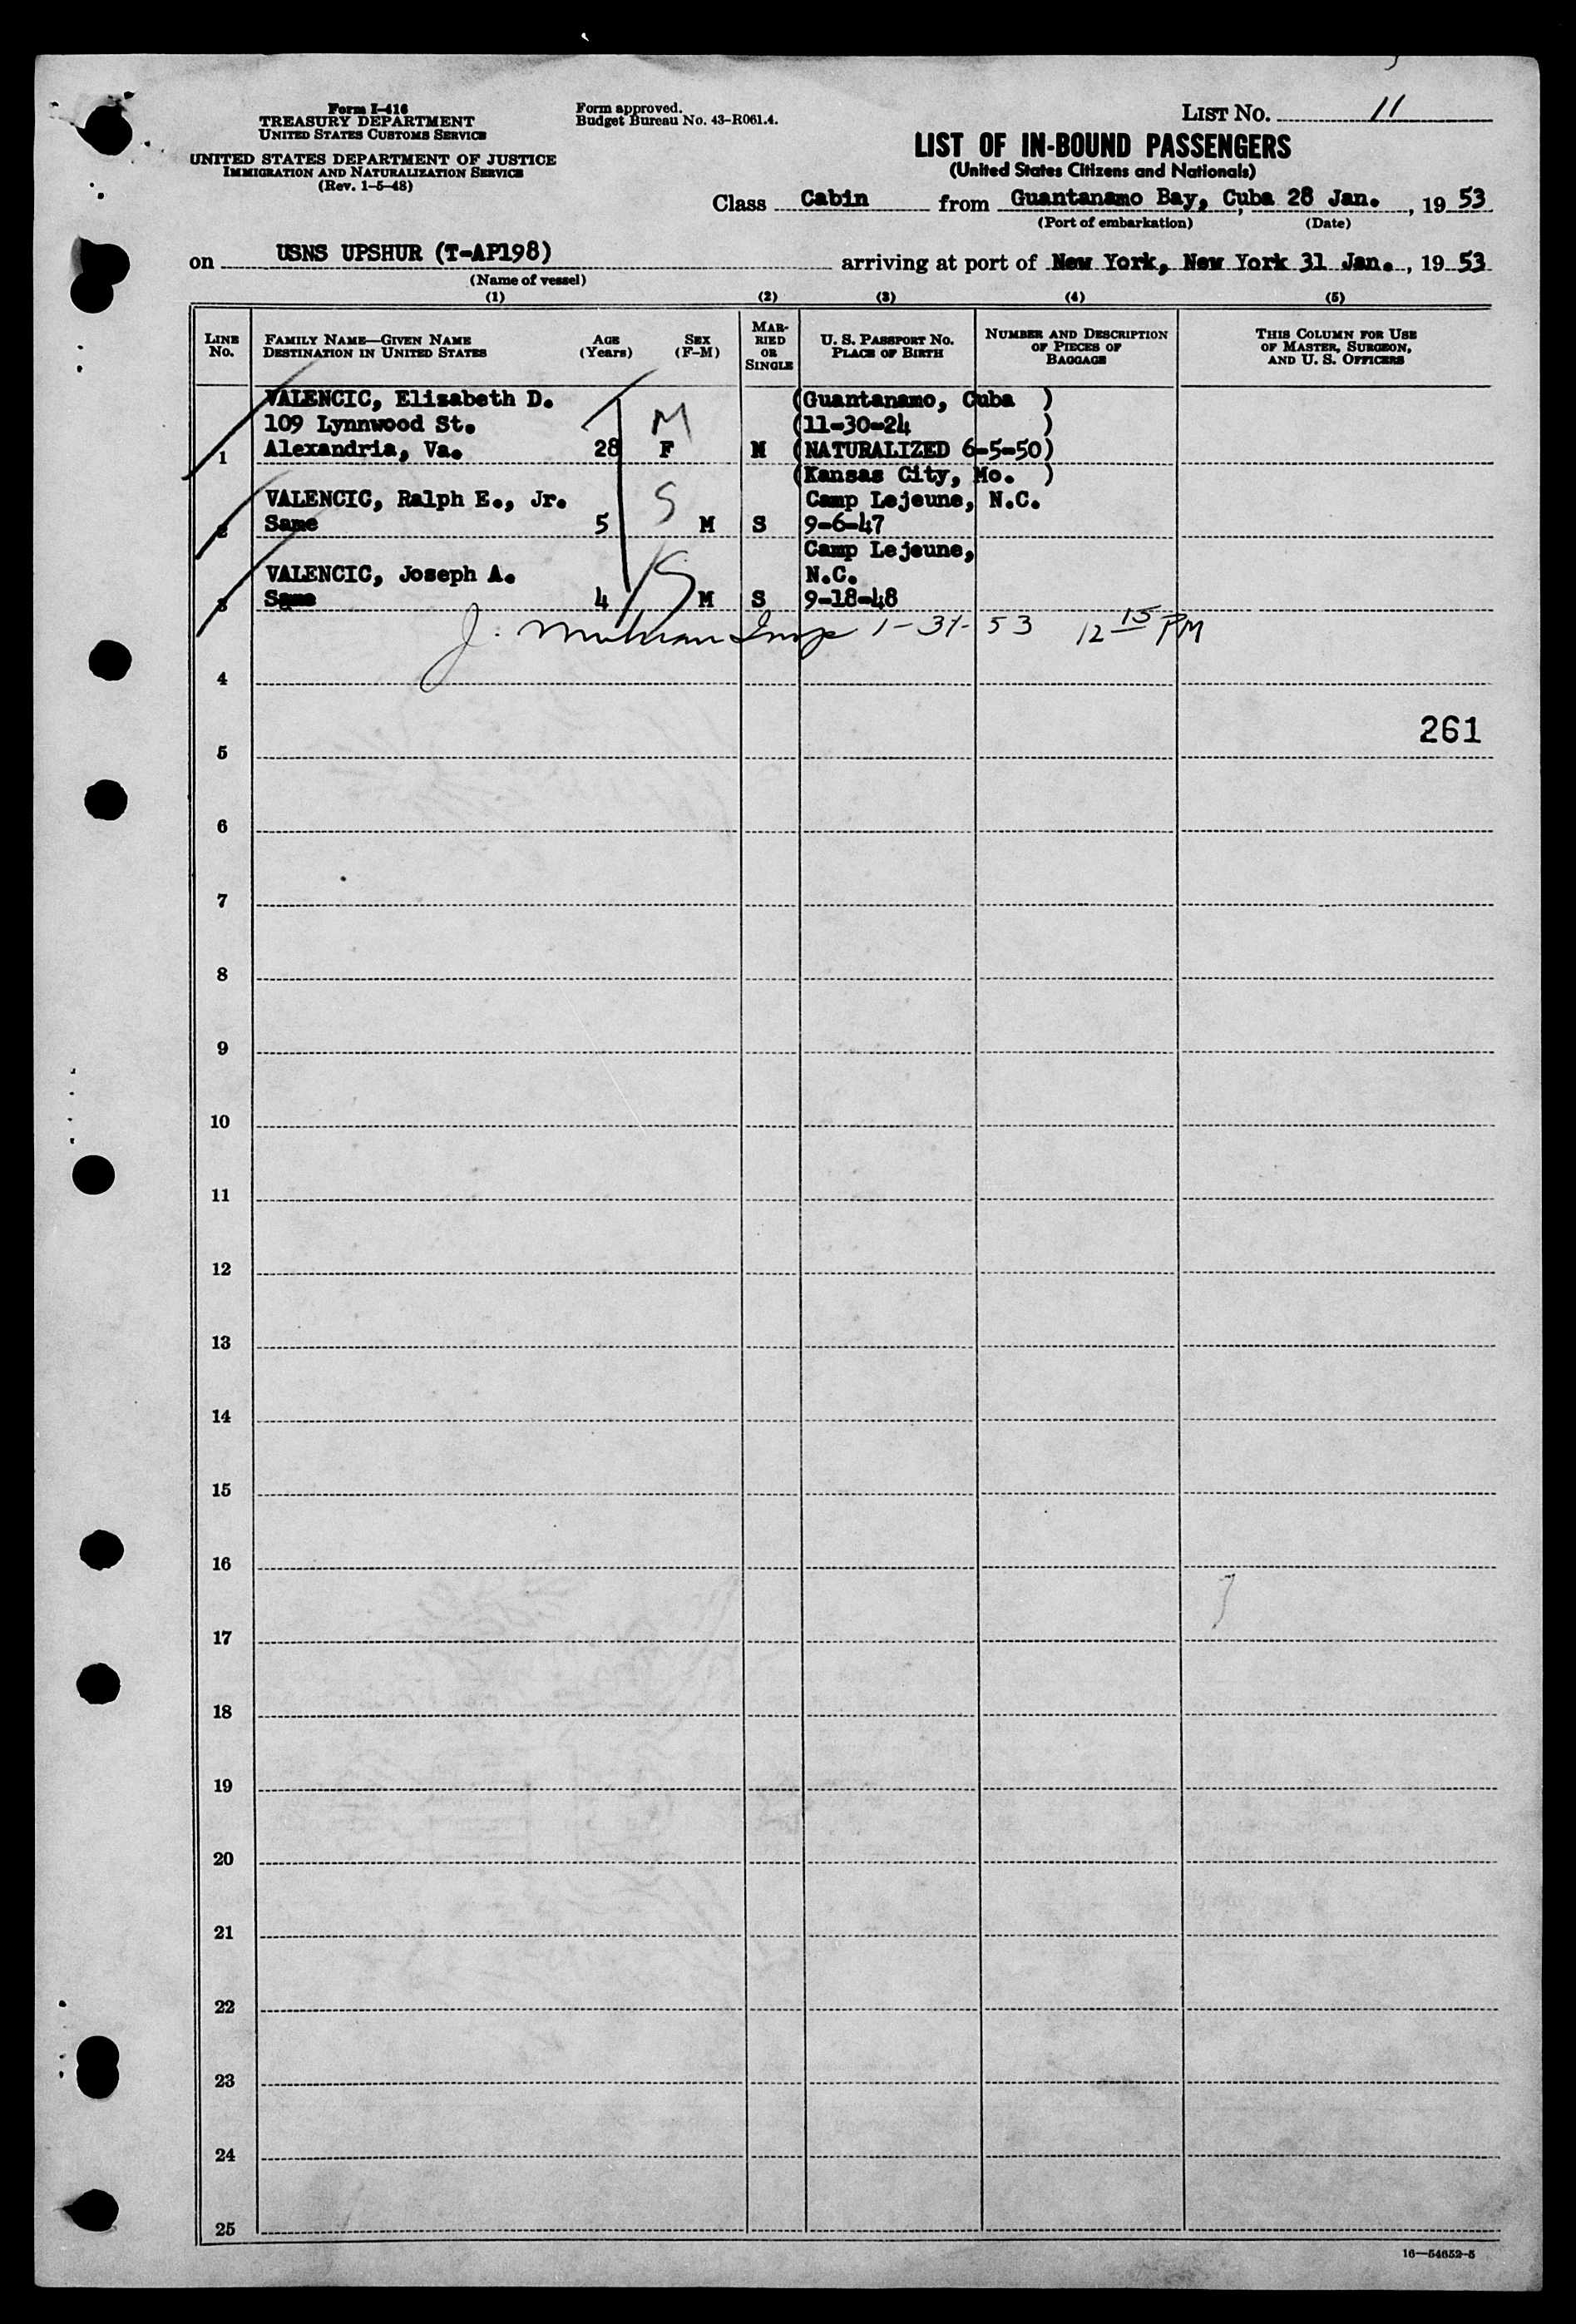 Form I-416
TREASURY DEPARTMENT
UNITED STATES CUSTOMS SERVICE
UNITED STATES DEPARTMENT OF JUSTICE
IMMIGRATION AND NATURALIZATION SERVICE
(Rev. 1-5-48)
Form approved.
Budget Bureau No. 43-R061.4.
LIST No. 11
LIST OF IN-BOUND PASSENGERS
(United States Citizens and Nationals)
Class Cabin from Guantanamo Bay, Cuba, 28 Jan., 19 53
(Port of embarkation) (Date)
on USNS UPSHUR (T-AP198) arriving at port of New York, New York 31 Jan., 19 53
(Name of vessel)
(1) (2) (3) (4) (5)
LINE No.
FAMILY NAME—GIVEN NAME
DESTINATION IN UNITED STATES
AGE (Years)
SEX (F-M)
MARRIED OR SINGLE
U. S. PASSPORT No.
PLACE OF BIRTH
NUMBER AND DESCRIPTION
OF PIECES OF
BAGGAGE
THIS COLUMN FOR USE
OF MASTER, SURGEON,
AND U. S. OFFICERS
VALENCIC, Elizabeth D. (Guantanamo, Cuba )
109 Lynnwood St. M (11-30-24 )
1 Alexandria, Va. 28 F M (NATURALIZED 6-5-50)
(Kansas City, Mo. )
VALENCIC, Ralph E., Jr. S Camp Lejeune, N.C.
2 Same 5 M S 9-6-47
Camp Lejeune,
VALENCIC, Joseph A. S N.C.
3 Same 4 M S 9-18-48
J. Insp 1-31-53 12 15 PM
4
261
5
6
7
8
9
10
11
12
13
14
15
16
17
18
19
20
21
22
23
24
25
16—54652-5